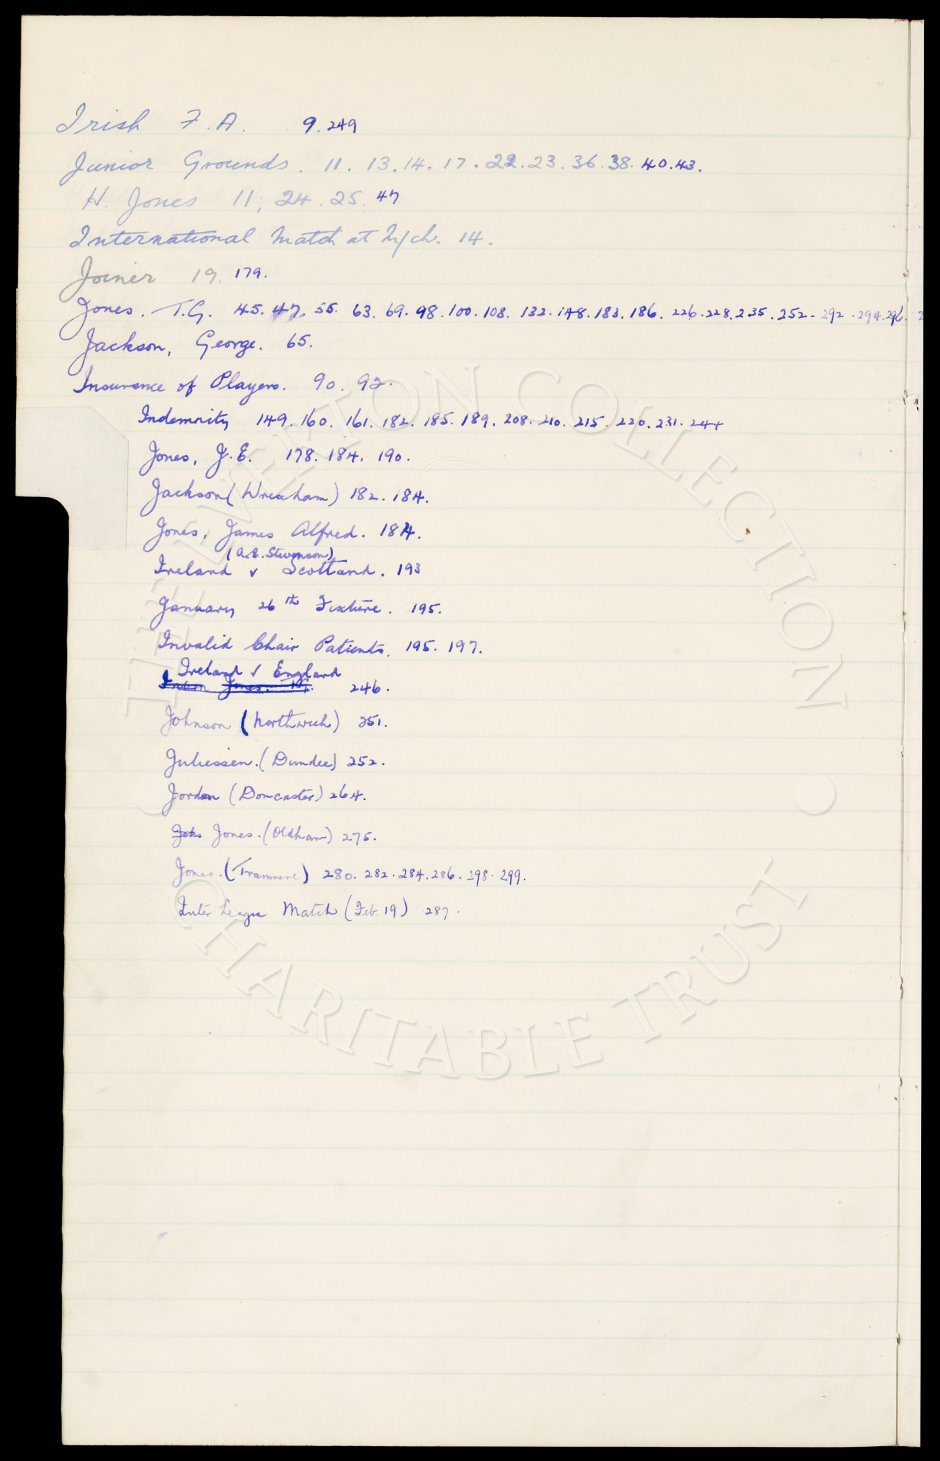 Irish F.A. 9. 249
Junior Grounds. 11. 13. 14. 17. 22. 23. 36. 38. 40. 43.
H. Jones 11, 24. 25. 47
International Match at M/ch. 14.
Joiner 19. 179.
Jones. T.G. 45. 47. 55. 63. 69. 98. 100. 108. 132. 148. 183. 186. 226. 228. 235. 252. 292. 294. 296.
Jackson, George. 65.
Insurance of Players. 90. 92.
Indemnity 149. 160. 161. 182. 185. 189. 208. 210. 215. 220. 231. 244
Jones, J.E. 178. 184. 190.
Jackson (Wrexham) 182. 184.
Jones, James Alfred. 184.
(A.E. Stevenson)
Ireland v Scotland. 193
January 26th Fixture. 195.
Invalid Chair Patients. 195. 197.
Ireland v England
Jones. 246.
Johnson (Northwich) 251.
Juliessen. (Dundee) 252.
Jordan (Doncaster) 264.
Jones. (Oldham) 275.
Jones. (Tranmere) 280. 282. 284. 286. 298. 299.
Inter League Match (Feb. 19) 287.
THE EVERTON COLLECTION
CHARITABLE TRUST